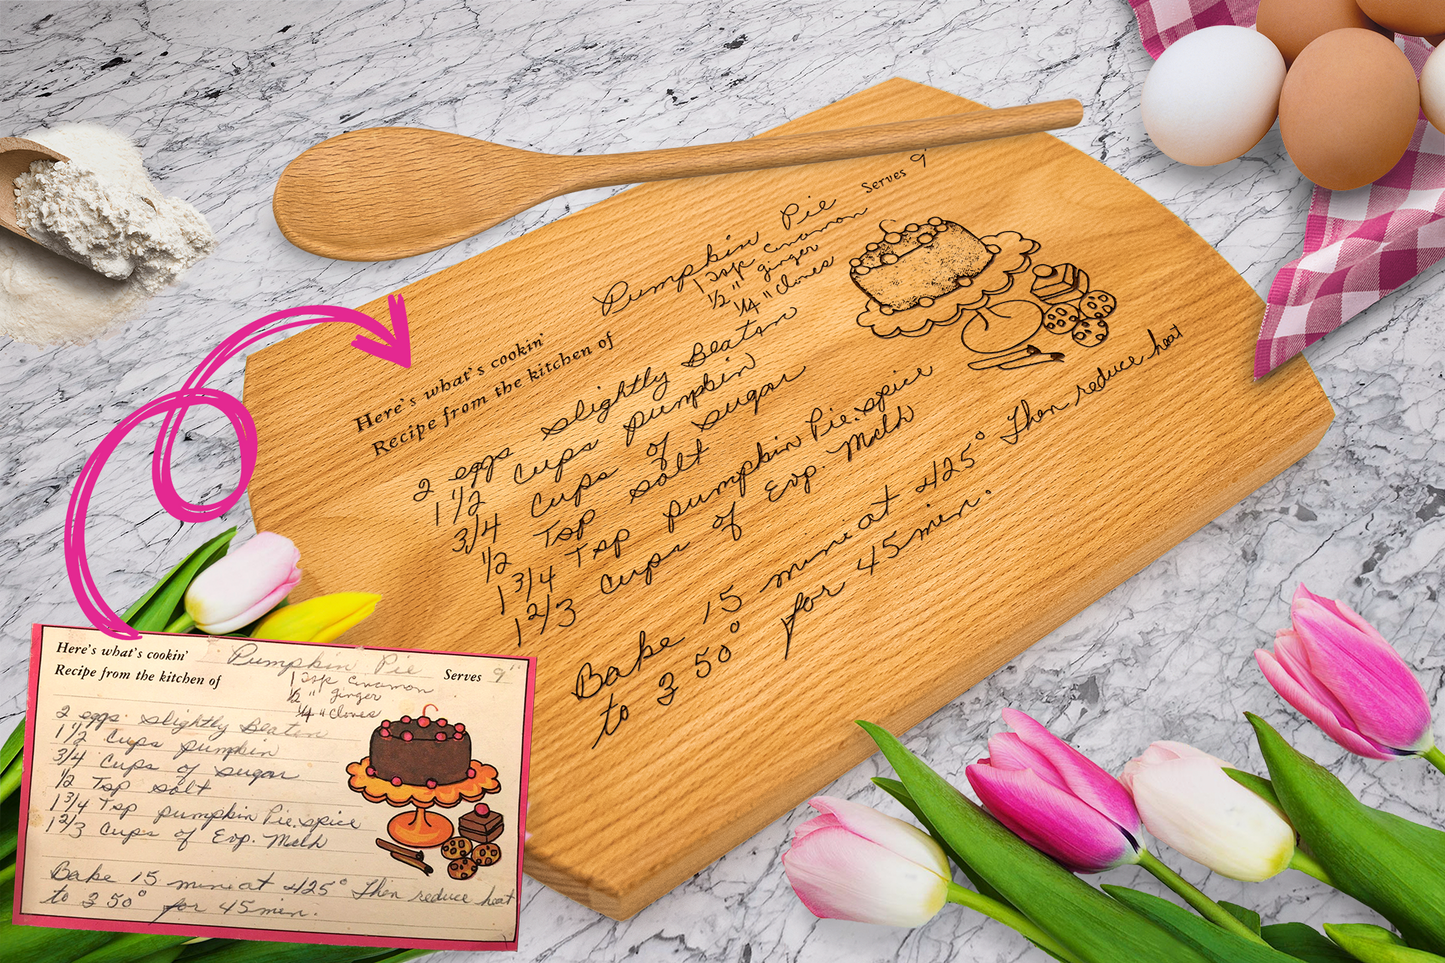 Pumpkin Pie
Serves 9"
1 Tsp Cinamon
1/2 " ginger
1/4 " Cloves
Here's what's cookin'
Recipe from the kitchen of
2 eggs slightly Beaton
1 1/2 Cups pumpkin
3/4 Cups of sugar
1/2 Tsp salt
1 3/4 Tsp pumpkin Pie. spice
1 2/3 Cups of Evp. Melh
Bake 15 mins at 425° Then reduce heat
to 350° for 45 min.
Here's what's cookin' Pumpkin Pie Serves 9"
Recipe from the kitchen of
1 Tsp Cinamon
1/2 " ginger
1/4 " Cloves
2 eggs slightly Beaton
1 1/2 Cups pumpkin
3/4 Cups of sugar
1/2 Tsp salt
1 3/4 Tsp pumpkin Pie. spice
1 2/3 Cups of Evp. Melh
Bake 15 mins at 425° Then reduce heat
to 350° for 45 min.